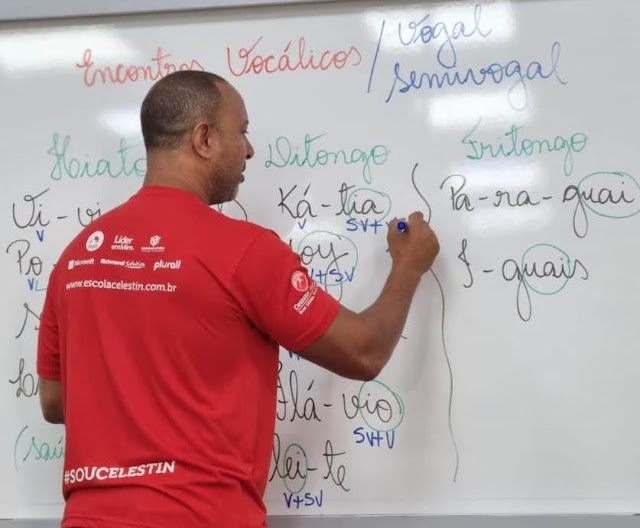 Encontros Vocálicos / Vogal
semivogal
Hiato Ditongo Tritongo
Vi-vi
V
Po-
V
(saú
Ká-tia
V SV+V
oy
V+SV
Flá-vio
SV+V
lei-te
V+SV
Pa-ra-guai
I-guais
Líder
em Mim.
Microsoft Richmond Solution plurall
www.escolacelestin.com.br
#SOUCELESTIN